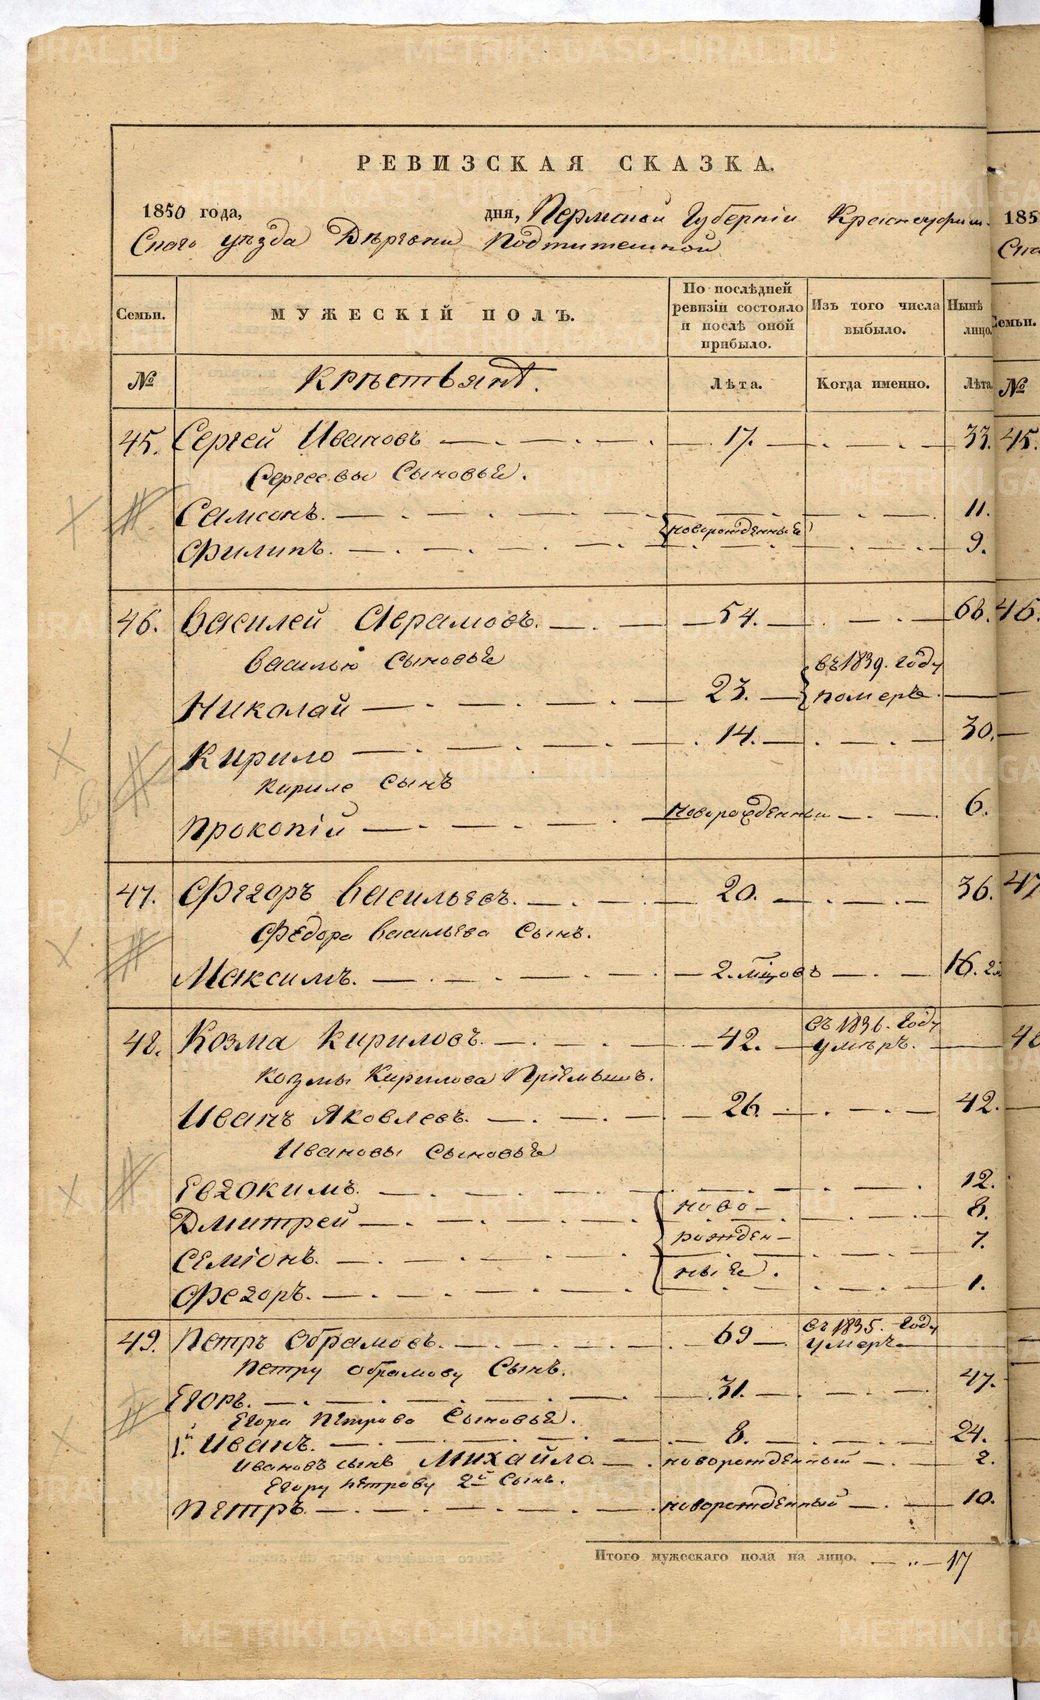 METRIKI.GASO-URAL.RU
РЕВИЗСКАЯ СКАЗКА.
1850 года, дня, Пермской Губернiи Красноуфим-
скаго уѣзда Деревни Подтитешной
Семьи. МУЖЕСКIЙ ПОЛЪ. По послѣдней ревизiи состояло и послѣ оной прибыло. Изъ того числа выбыло. Нынѣ лицо.
№ Крестьянѣ. Лѣта. Когда именно. Лѣта.
45. Сергей Ивановъ 17. 33.
Сергеевы Сыновья.
Самсонъ. 11.
новорожденные
Филипъ. 9.
46. Василей Аврамовъ. 54. 66.
Василью Сыновья
въ 1839. году
Николай 23. померъ.
Кирило 14. 30.
Кириле Сынъ
Прокопiй новорожденный 6.
47. Федоръ Васильевъ. 20. 36.
Федора Васильева Сынъ.
Максимъ. 2. мѣцовъ 16.
48. Козма Кириловъ. 42. въ 1836. году
умеръ.
Козмы Кирилова Прiемышъ.
Иванъ Яковлевъ. 26. 42.
Ивановы Сыновья
Евдокимъ. 12.
Дмитрей ново- 8.
рожден-
Семiонъ. 7.
ные.
Федоръ. 1.
49. Петръ Обрамовъ. 69 въ 1835. году
умеръ
Петру Обрамову Сынъ.
Егоръ. 31. 47.
Егора Петрова Сыновья.
1й Иванъ. 8. 24.
Ивановъ сынъ Михайло новорожденный 2.
Егору Петрову 2й Сынъ.
Петръ новорожденный 10.
Итого мужескаго пола на лицо. 17